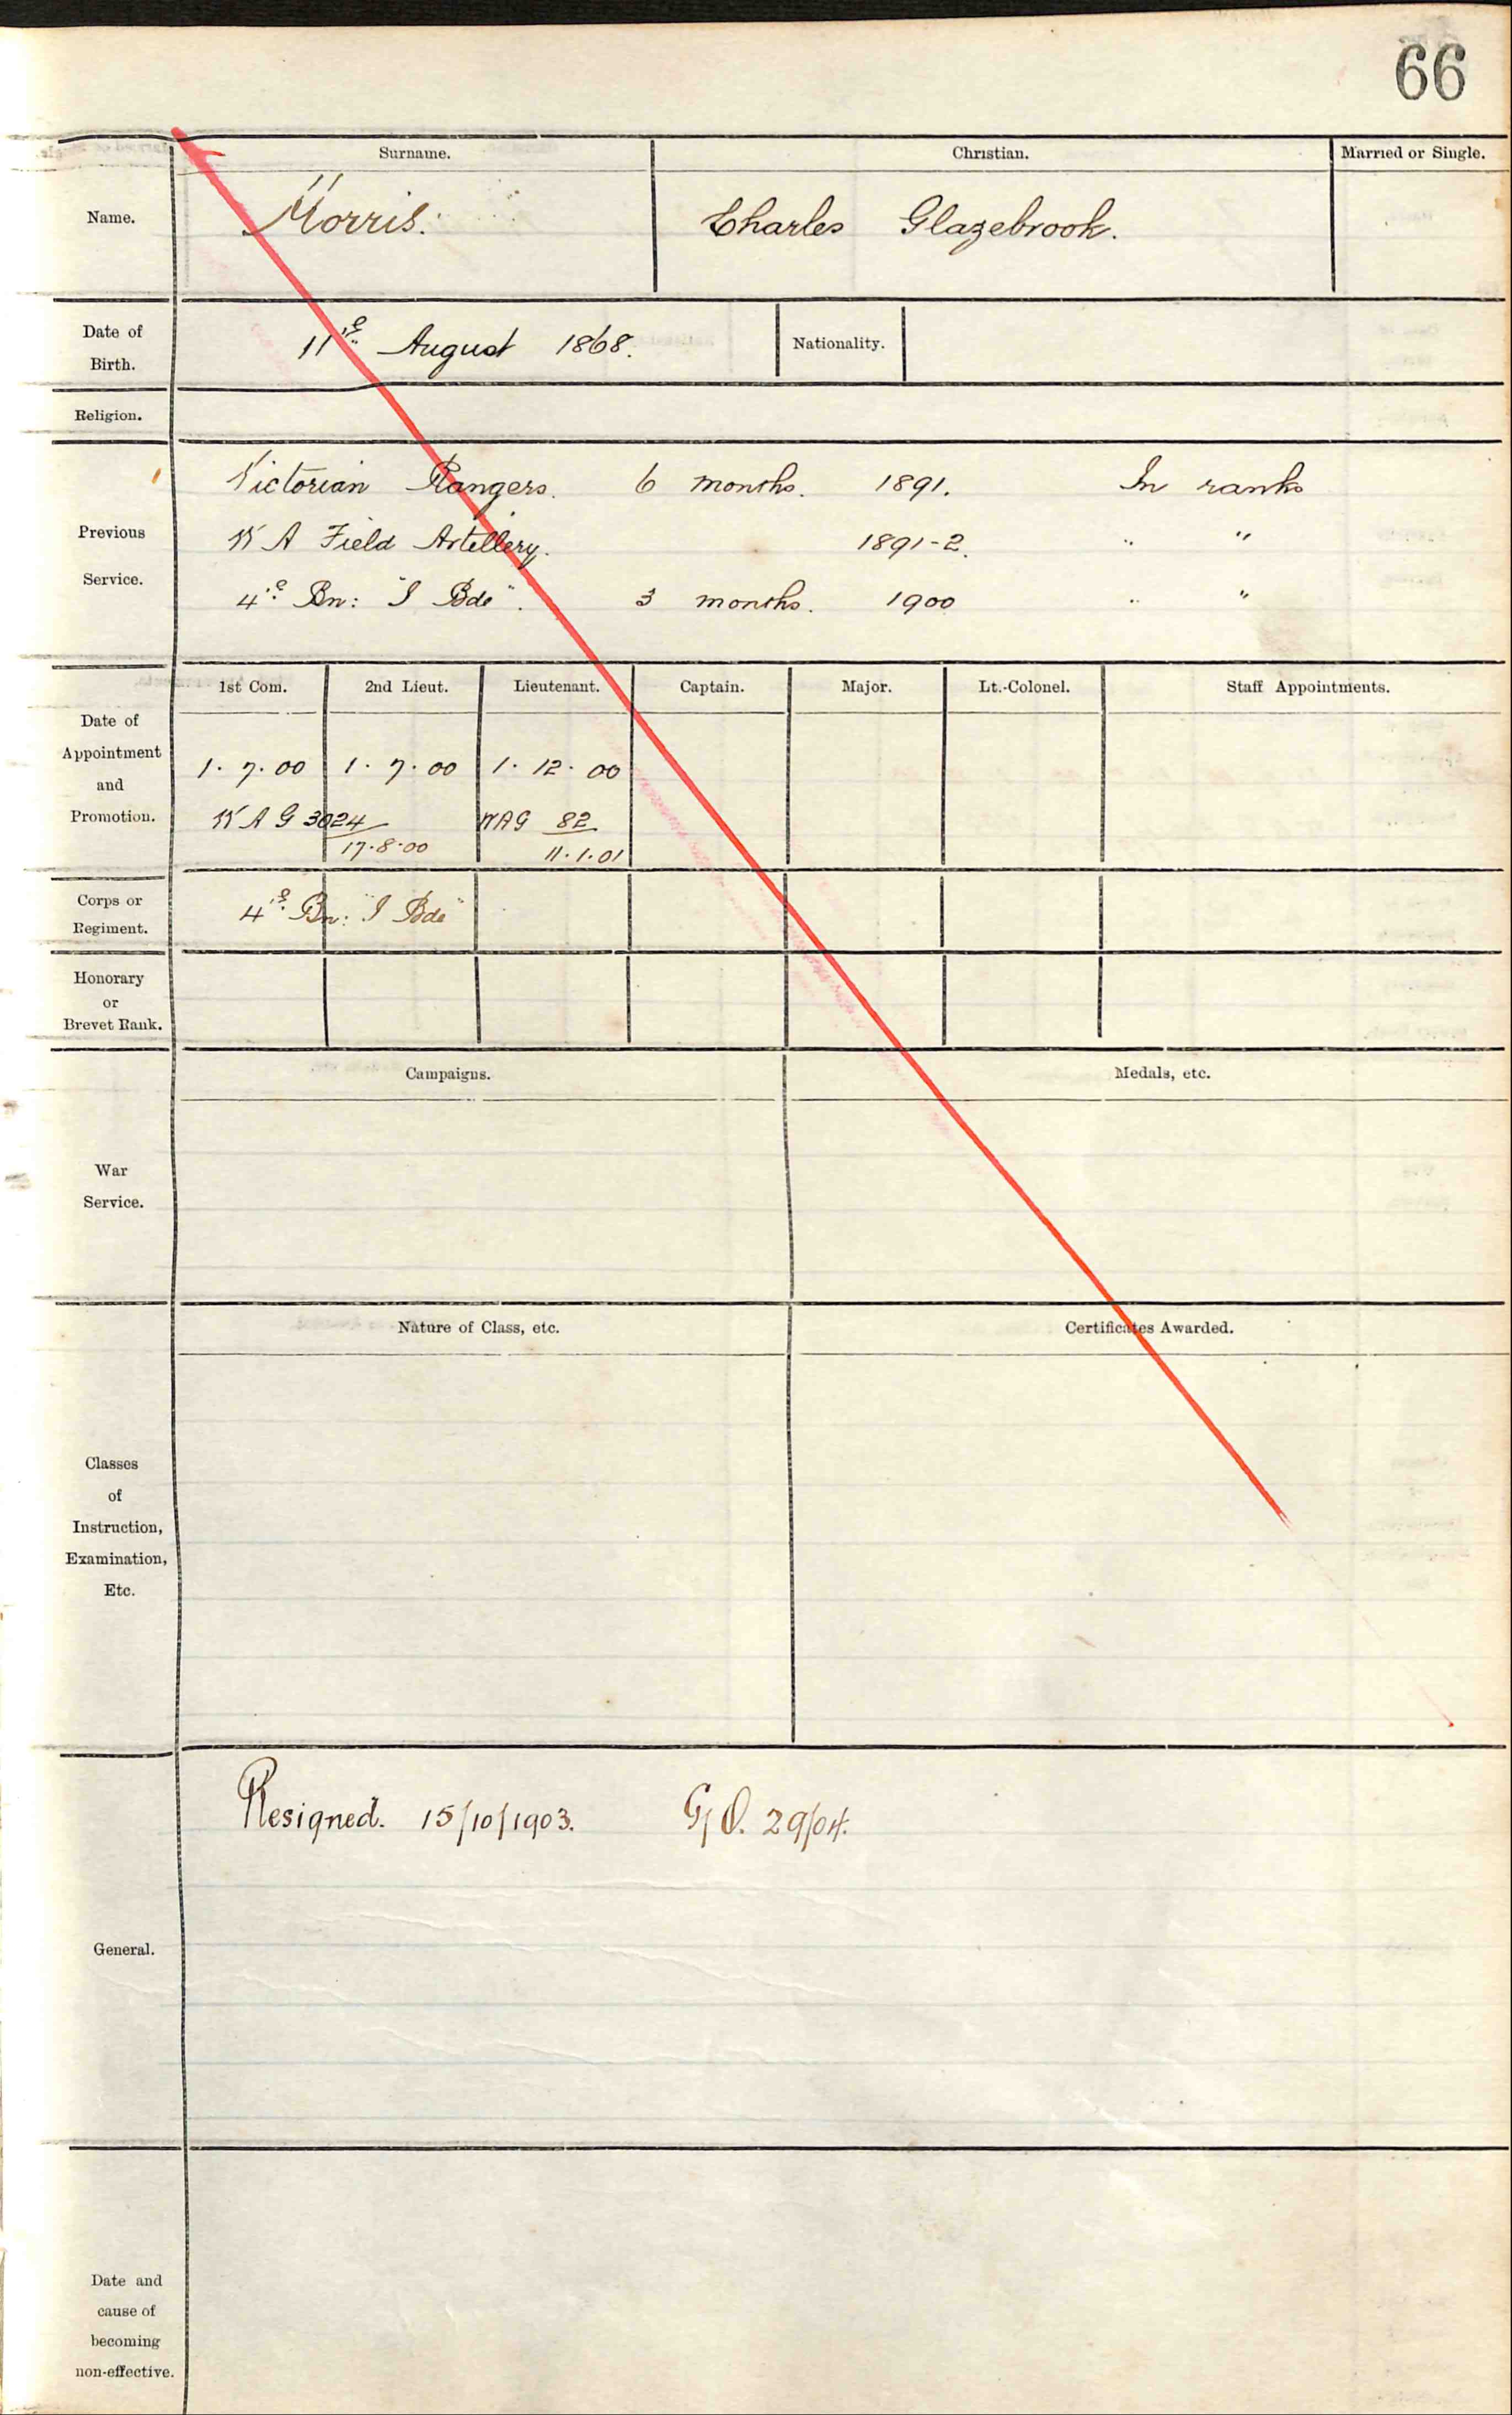 66
Surname. Christian. Married or Single.
Name. Morris. Charles Glazebrook.
Date of Birth. 11th August 1868. Nationality.
Religion.
Previous Service.
Victorian Rangers. 6 months. 1891. In ranks
W A Field Artillery. 1891-2. " "
4th Bn: "I Bde". 3 months. 1900 " "
Date of Appointment and Promotion.
1st Com. 2nd Lieut. Lieutenant. Captain. Major. Lt.-Colonel. Staff Appointments.
1. 7. 00 1. 7. 00 1. 12. 00
W A G 3024 WAG 82
17.8.00 11.1.01
Corps or Regiment. 4th Bn: "I Bde"
Honorary or Brevet Rank.
War Service.
Campaigns. Medals, etc.
Nature of Class, etc. Certificates Awarded.
Classes of Instruction, Examination, Etc.
General.
Resigned. 15/10/1903. G.O. 29/04.
Date and cause of becoming non-effective.